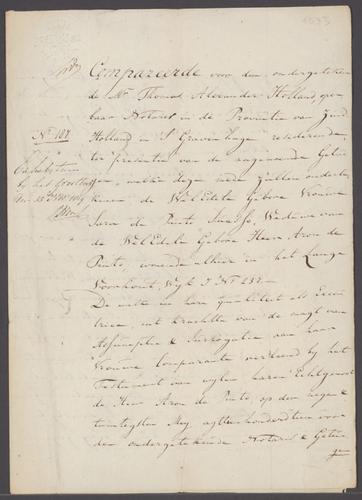 1833
Compareerde voor den ondergeteken
de Mr. Thomas Alexander Holland, open
baar Notaris in de Provintie van Zuid
No. 187.
Holland in 'S Gravenhage resideerende,
ter presentie van de nagenoemde Getui
gen,
by het
kenen de WelEdele Gebore Vrouwe
Sara de Pinto Weduwe van
de WelEdele Gebore Heer Aron de
Pinto, woonende alhier in het Lange
Voorhout, Wyk I No. 232.
De welke in hare qualiteit als Execu
trice, uit krachte van de magt van
Assumptie & Surrogatie aan haar
Vrouwe Comparante verleend by het
Testament van wylen haren Echtgenoot
de Heer Aron de Pinto, op den negen &
twintigsten May agttienhonderddrie voor
den ondergetekende Notaris & Getui